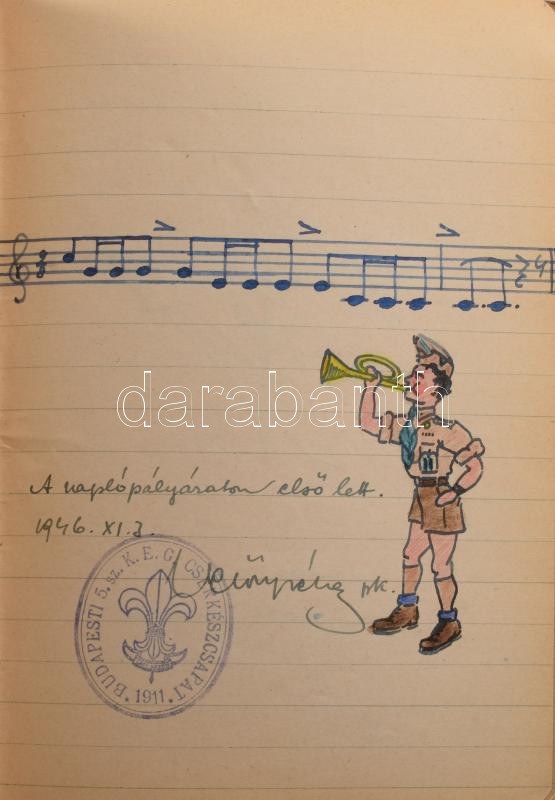 darabanth
A naplópályázaton első lett.
1946. XI. 3.
pk.
BUDAPESTI 5. sz. K. E. G. CSERKÉSZCSAPAT
1911